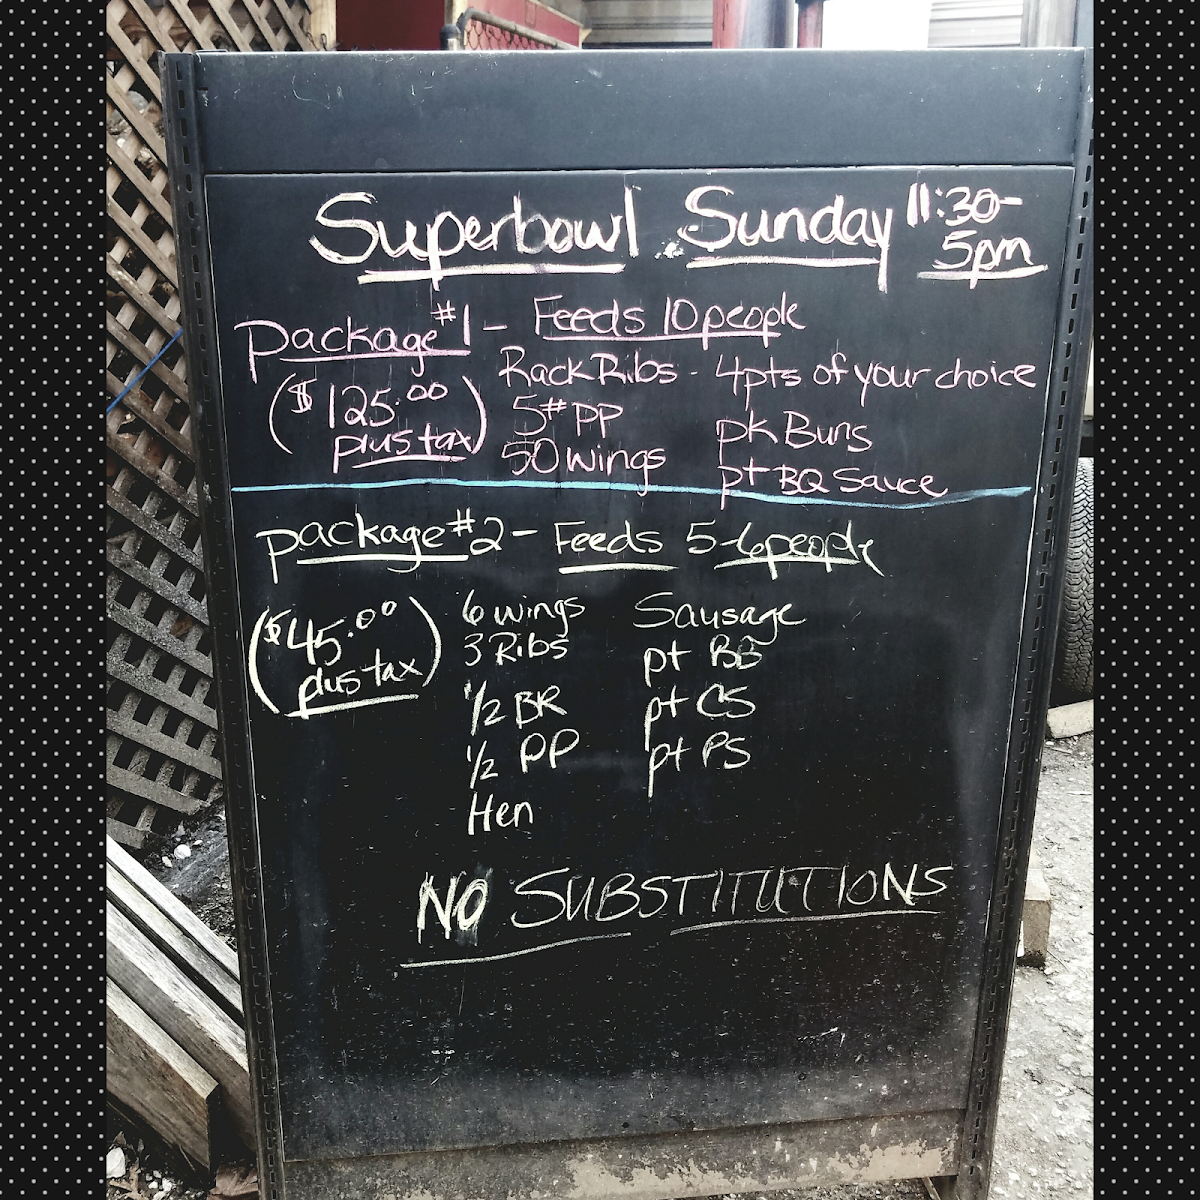 Superbowl Sunday 11:30-
5pm
Package #1 - Feeds 10 people
($125.00
plus tax)
Rack Ribs - 4pts of your choice
5# PP
pk Buns
50 wings
pt BQ Sauce
Package #2 - Feeds 5-6 people
($45.00
plus tax)
6 wings
3 Ribs
1/2 BR
1/2 PP
Hen
Sausage
pt BB
pt CS
pt PS
NO SUBSTITUTIONS